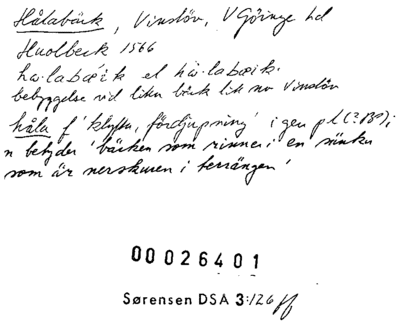 Hålabäck, Vinslöv, V Göinge hd
Huolbeck 1566
ha·labæ·k el hå·labæk·
bebyggelse vid liten bäck lik nv Vinslöv
håla f 'klyfta, fördjupning' i gen pl (?BO);
n betyder 'bäcken som rinner i en sänka
som är nerskuren i terrängen'
00026401
Sørensen DSA 3:126 ff